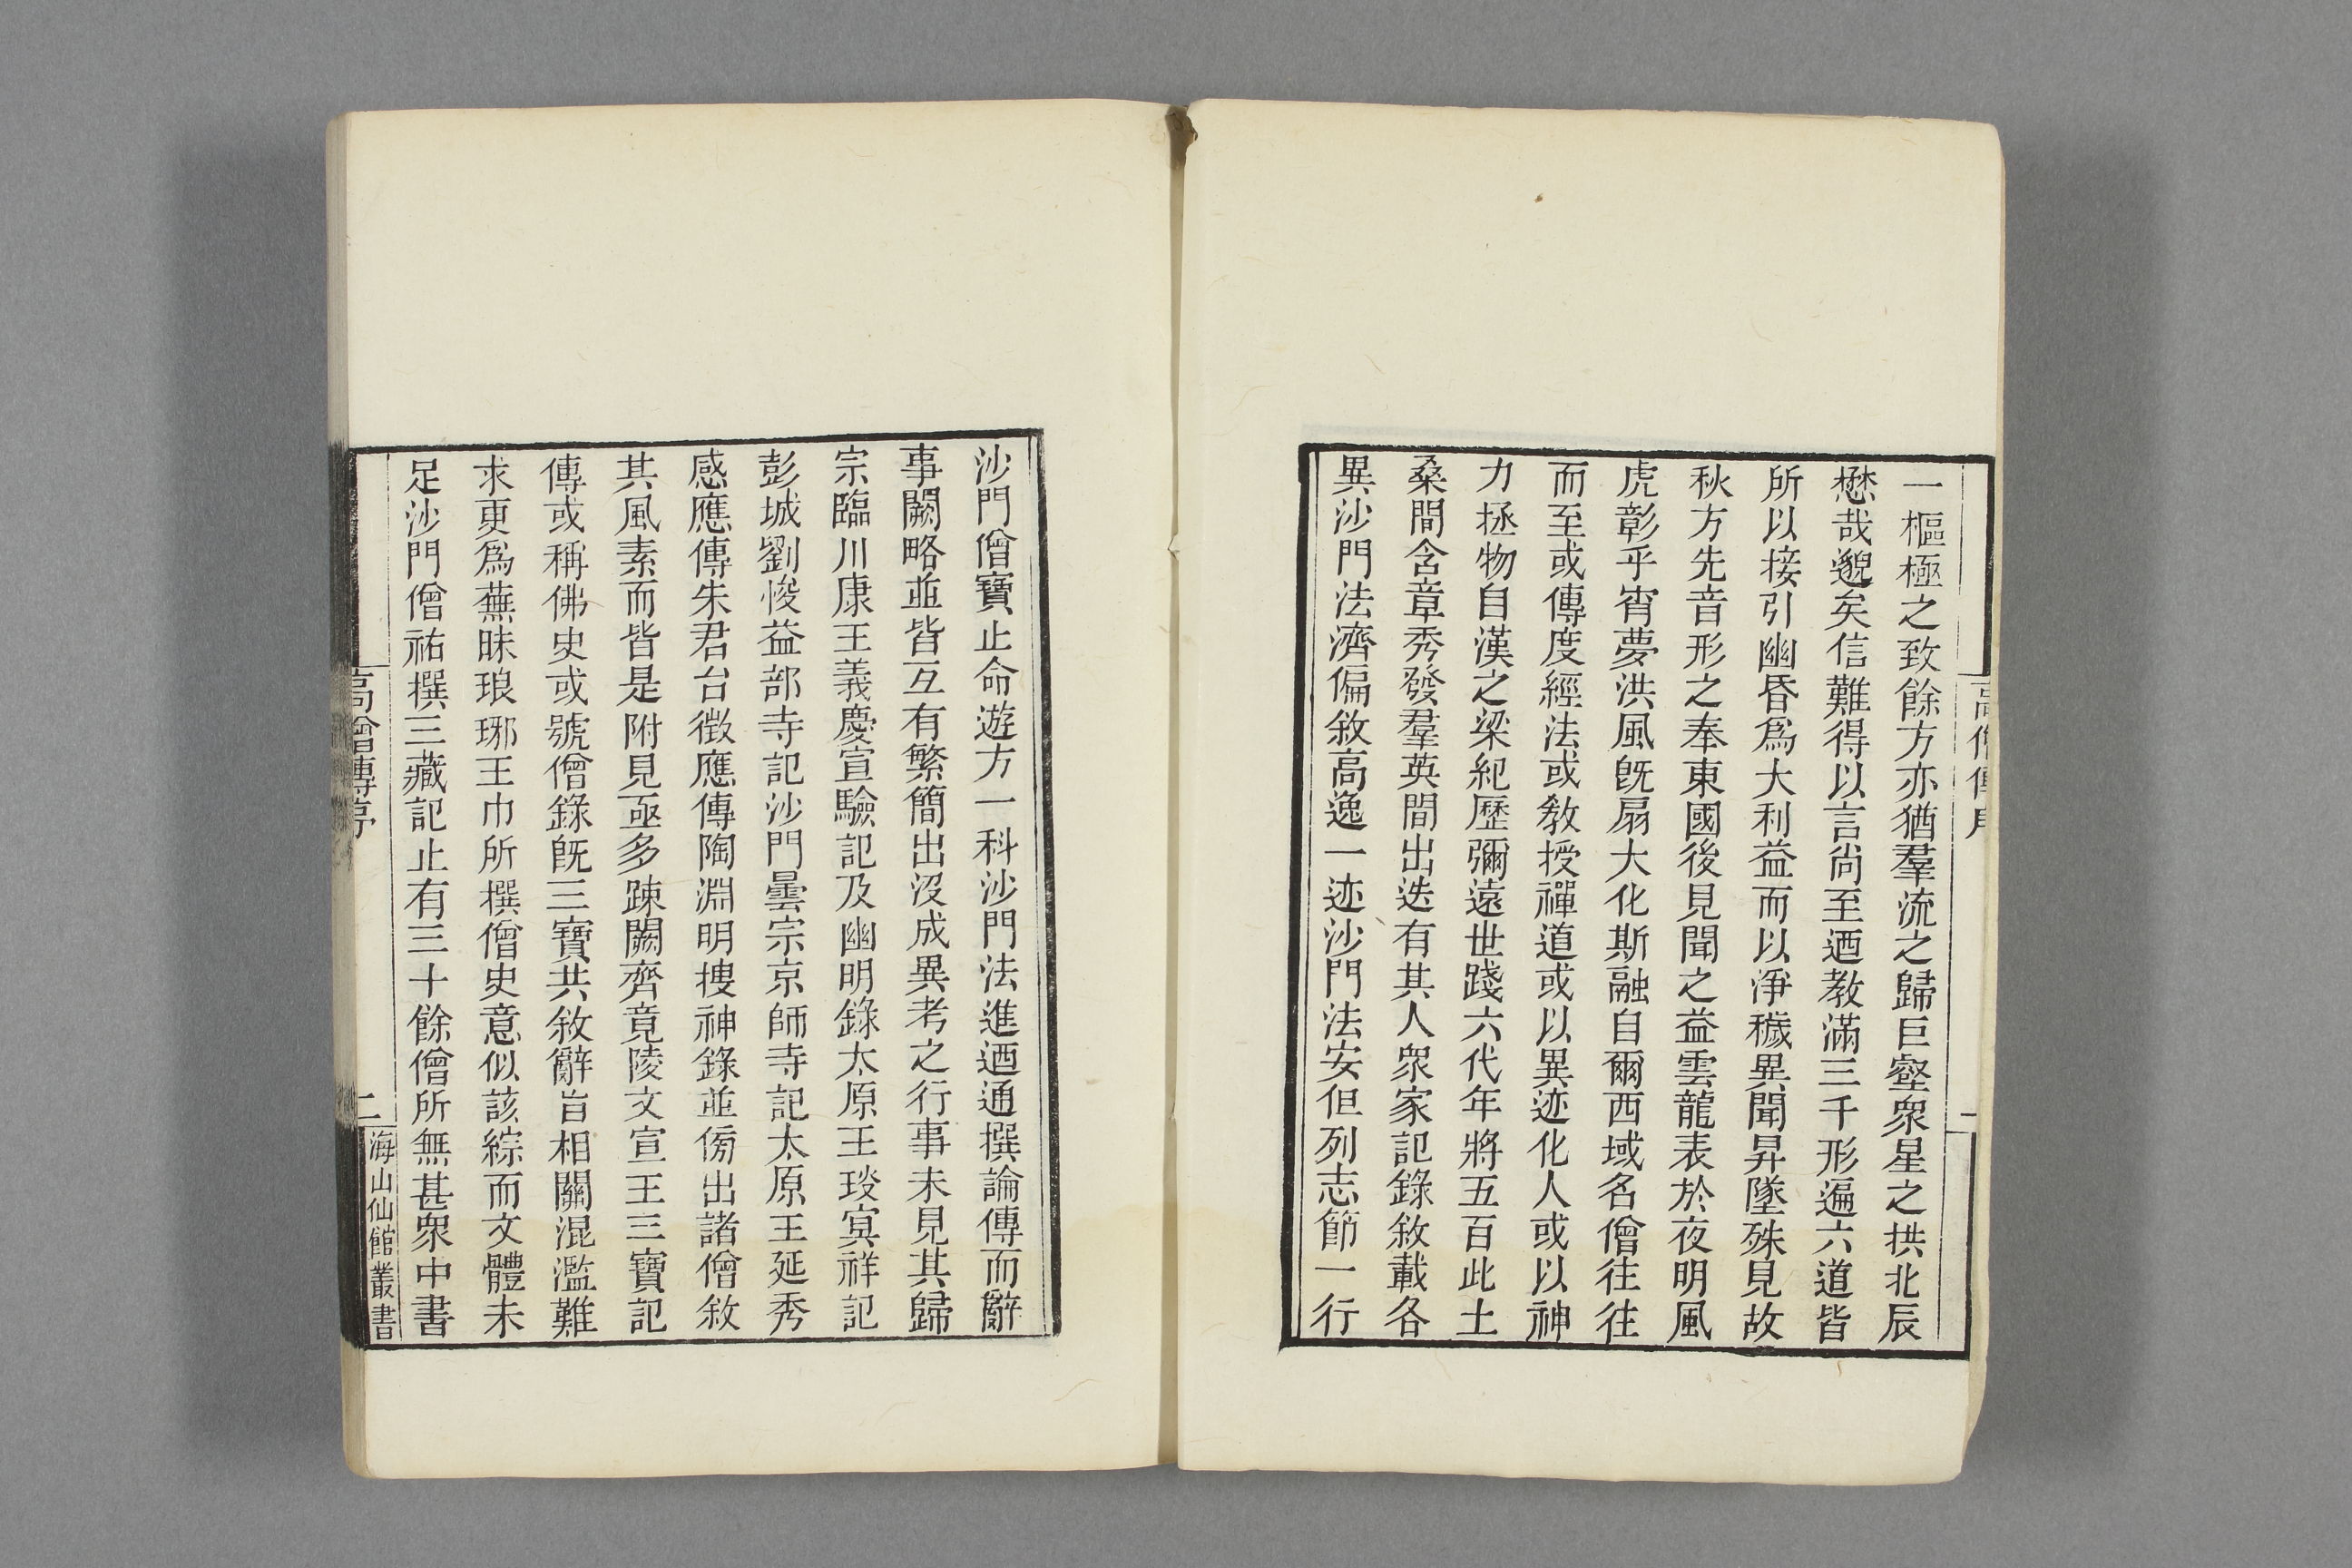 一樞極之致餘方亦猶羣流之歸巨壑衆星之拱北辰
懋哉邈矣信難得以言尚至迺教滿三千形遍六道皆
所以接引幽昏爲大利益而以淨穢異聞昇墜殊見故
秋方先音形之奉東國後見聞之益雲龍表於夜明風
虎彰乎宵夢洪風旣扇大化斯融自爾西域名僧往往
而至或傳度經法或敎授禪道或以異迹化人或以神
力拯物自漢之梁紀歷彌遠世踐六代年將五百此土
桑間含章秀發羣英間出迭有其人衆家記錄敘載各
異沙門法濟偏敘高逸一迹沙門法安但列志節一行
沙門僧寶止命遊方一科沙門法進迺通撰論傳而辭
事闕略並皆互有繁簡出沒成異考之行事未見其歸
宗臨川康王義慶宣驗記及幽明錄太原王琰冥祥記
彭城劉悛益部寺記沙門曇宗京師寺記太原王延秀
感應傳朱君台徵應傳陶淵明搜神錄並傍出諸僧敘
其風素而皆是附見亟多踈闕齊竟陵文宣王三寶記
傳或稱佛史或號僧錄旣三寶共敘辭旨相關混濫難
求更爲蕪昧琅琊王巾所撰僧史意似該綜而文體未
足沙門僧祐撰三藏記止有三十餘僧所無甚衆中書
高僧傳序
二
海山仙館叢書